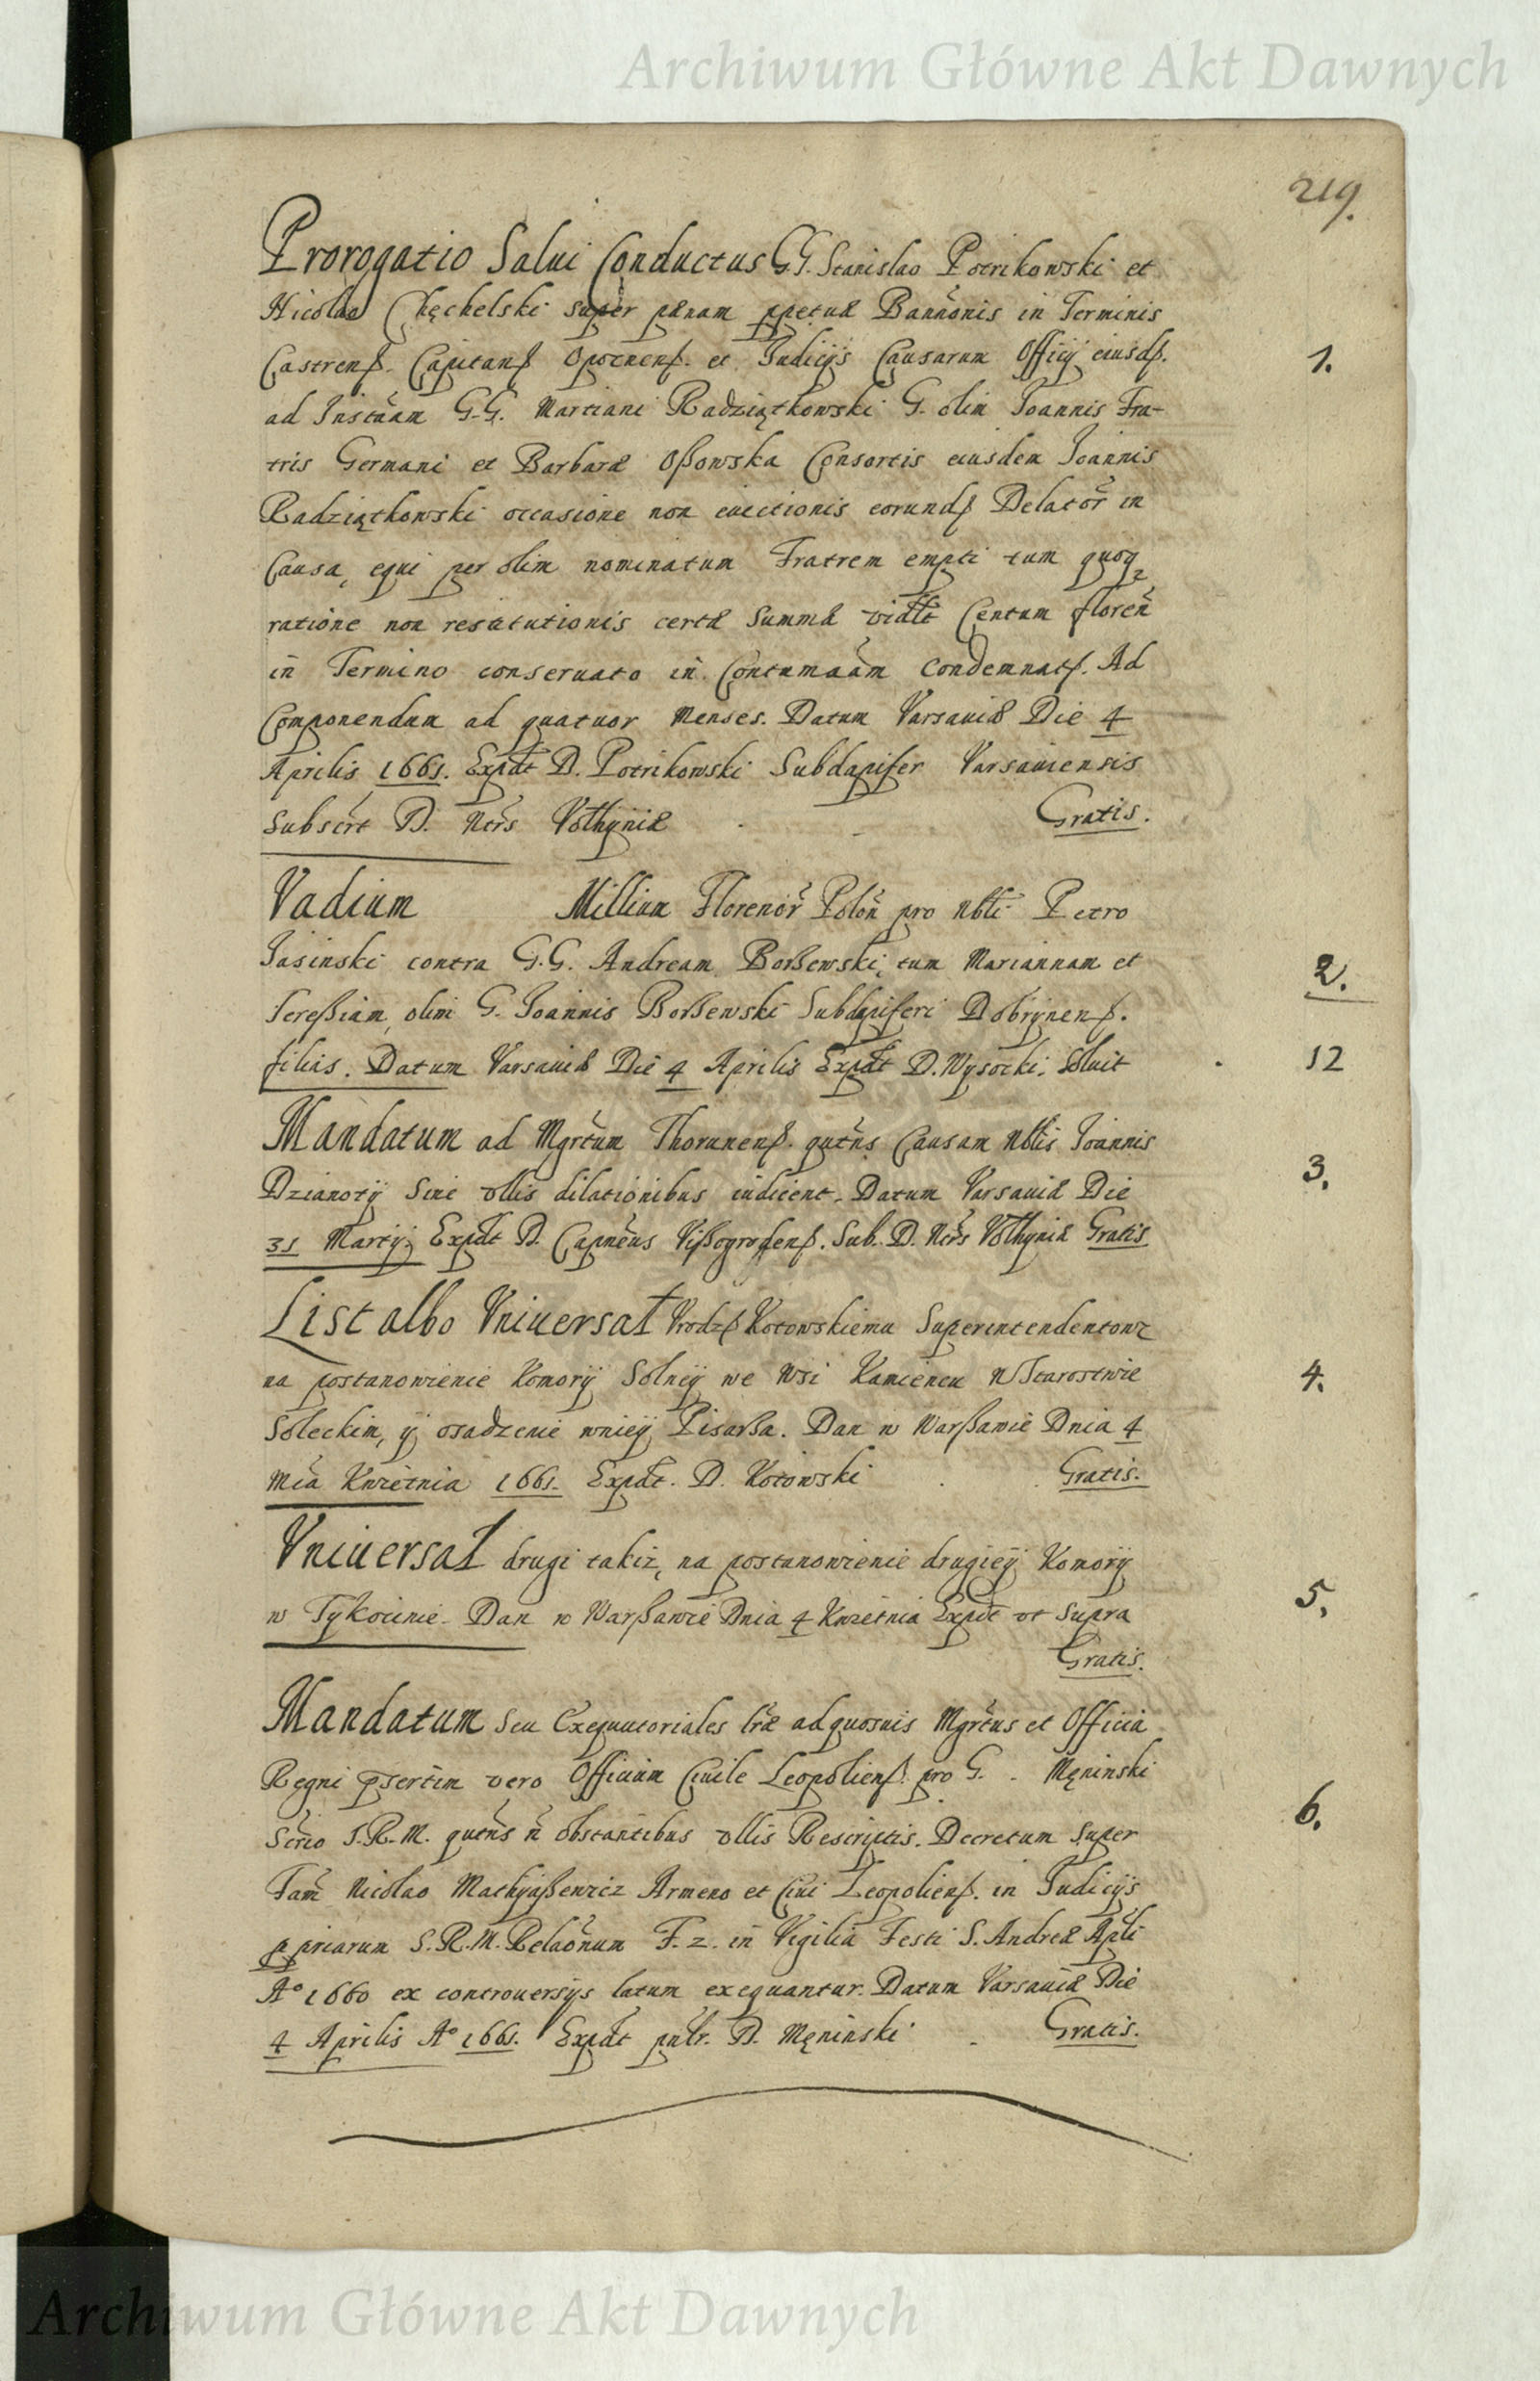 Archiwum Główne Akt Dawnych
219.
Prorogatio Salui Conductus G.G. Stanislao Potrikowski et
Nicolao Chęchelski super pænam ppetuæ Bannōnis in Terminis
Castrenß. Capitanß Opocnenß. et Judicijs Causarum Officij eiusdß.
1.
ad Instāam G.G. Martiani Radziątkowski G. olim Joannis Fra-
tris Germani et Barbaræ Oßowska Consortis eiusdem Joannis
Radziątkowski occasione non euictionis eorundß Delator̃ in
Causa, equi per olim nominatum Fratrem empti tum quoqꝫ
ratione non restitutionis certæ Summæ vidlt Centum floren̄
in Termino conseruato in Contumaām condemnatß. Ad
Componendum ad quatuor Menses. Datum Varsauiæ Die 4
Aprilis 1661. Expdt D. Potrikowski Subdapifer Varsauiensis
Subscrt D. Ncrs Volhyniæ Gratis.
Vadium Millium Florenor̃ Polon̄ pro Nbli Petro
Jasinski contra G.G. Andream Borßewski, tum Mariannam et
2.
Tereßiam, olim G. Joannis Borßewski Subdapiferi Dobrÿnenß.
filias. Datum Varsauiæ Die 4 Aprilis Expdt D. Wysocki. Soluit
12
Mandatum ad Mgrtum Thorunenß. qutns Causam Nblis Joannis
Dzianotÿ Sine vllis dilationibus iudicent. Datum Varsauiæ Die
3.
31 Martij. Expdt D. Capneus Vißogrodenß. Sub. D. Ncrs Volhyniæ Gratis
List albo Vniuersał Vrodzß Kotowskiemu Superintendentowi
na postanowienie Komorÿ Solneÿ we Wsi Kamiencu W Starostwie
4.
Soleckim, ÿ osadzenie wnieÿ Pisarßa. Dan w Warßawie Dnia 4
Mca Kwietnia 1661. Expdt. D. Kotowski Gratis.
Vniuersał drugi takiz, na postanowienie drugieÿ Komorÿ
5.
w Tykocinie. Dan w Warßawie Dnia 4 Kwietnia Expdt vt Supra
Gratis.
Mandatum seu Exequutoriales lræ ad quosuis Mgrtus et Officia
Regni psertim vero Officium Ciuile Leopolienß. pro G. Męninski
6.
Scrio S.R.M. qutns n̄ obstantibus vllis Rescriptis. Decretum super
Fam̄ Nicolao Mathyaßewicz Armeno et Ciui Leopolienß. in Judicijs
ppriarum S.R.M. Relaōnum F. 2. in Vigilia Festi S. Andreæ Apli
Aº 1660 ex controuersijs latum exequantur. Datum Varsauiæ Die
4 Aprilis Aº 1661. Expdt pnlr. D. Męninski Gratis.
Archiwum Główne Akt Dawnych